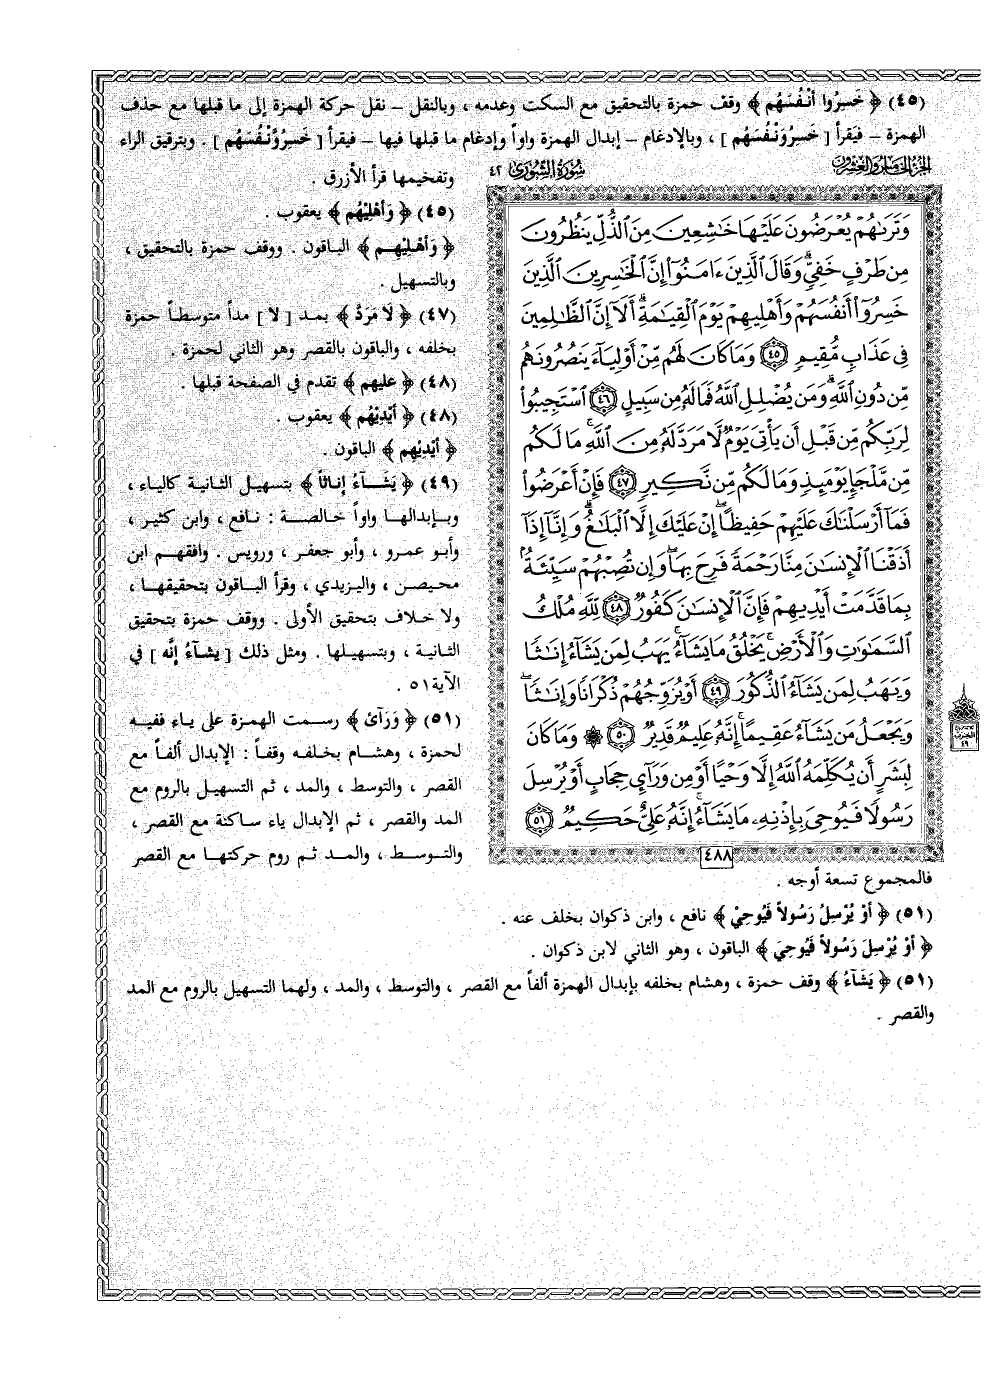 (٤٥) ﴿ خَسِرُوا أَنْفُسَهُم ﴾ وقف حمزة بالتحقيق مع السكت وعدمه ، وبالنقل – نقل حركة الهمزة إلى ما قبلها مع حذف
الهمزة – فيَقرأ [ خَسِرُوَنْفُسَهُم ] ، وبالإدغام – إبدال الهمزة واواً وإدغام ما قبلها فيها – فيقرأ [ خَسِرُوَّنْفُسَهُم ] . وبترقيق الراء
وتفخيمها قرأ الأزرق .
(٤٥) ﴿ وَأَهْلِيْهُم ﴾ يعقوب .
﴿ وَأَهْلِيْهِم ﴾ الباقون . ووقف حمزة بالتحقيق ،
وبالتسهيل .
(٤٧) ﴿ لاَ مَرَدَّ ﴾ بمد [ لا ] مداً متوسطاً حمزة
بخلفه ، والباقون بالقصر وهو الثاني لحمزة .
(٤٨) ﴿ عليهم ﴾ تقدم في الصفحة قبلها .
(٤٨) ﴿ أَيْدِيْهُم ﴾ يعقوب .
﴿ أَيْدِيْهِم ﴾ الباقون .
(٤٩) ﴿ يَشَـآءُ إِنَاثاً ﴾ بتسهيل الثانية كالياء ،
وبـإبدالهـا واواً خـالصـة : نـافع ، وابن كثير ،
وأبـو عمرو ، وأبو جعفر ، ورويس . وافقهـم ابن
محيصن ، واليزيدي ، وقرأ البـاقون بتحقيقهـا ،
ولا خـلاف بتحقيق الأولى . ووقف حمزة بتحقيق
الثانية ، وبتسهيلها . ومثل ذلك [ يشآءُ إِنَّه ] في
الآية٥١ .
(٥١) ﴿ وَرَآئِ ﴾ رسمت الهمزة على ياء ففيه
لحمزة ، وهشام بخلفه وقفاً : الإبدال ألفاً مع
القصر ، والتوسط ، والمد ، ثم التسهيل بالروم مع
المد والقصر ، ثم الإبدال ياء ساكنة مع القصر ،
والتـوسـط ، والمد ثـم روم حركتهـا مع القصر
الجزء الخامس والعشرون
سُورَةُ الشُّورَى ٤٢
وَتَرَىٰهُمْ يُعْرَضُونَ عَلَيْهَا خَٰشِعِينَ مِنَ ٱلذُّلِّ يَنظُرُونَ
مِن طَرْفٍ خَفِيٍّۗ وَقَالَ ٱلَّذِينَ ءَامَنُوٓاْ إِنَّ ٱلْخَٰسِرِينَ ٱلَّذِينَ
خَسِرُوٓاْ أَنفُسَهُمْ وَأَهْلِيهِمْ يَوْمَ ٱلْقِيَٰمَةِۗ أَلَآ إِنَّ ٱلظَّٰلِمِينَ
فِى عَذَابٍ مُّقِيمٍ ﴿٤٥﴾ وَمَا كَانَ لَهُم مِّنْ أَوْلِيَآءَ يَنصُرُونَهُم
مِّن دُونِ ٱللَّهِۗ وَمَن يُضْلِلِ ٱللَّهُ فَمَا لَهُۥ مِن سَبِيلٍ ﴿٤٦﴾ ٱسْتَجِيبُواْ
لِرَبِّكُم مِّن قَبْلِ أَن يَأْتِىَ يَوْمٌ لَّا مَرَدَّ لَهُۥ مِنَ ٱللَّهِۚ مَا لَكُم
مِّن مَّلْجَإٍ يَوْمَئِذٍ وَمَا لَكُم مِّن نَّكِيرٍ ﴿٤٧﴾ فَإِنْ أَعْرَضُواْ
فَمَآ أَرْسَلْنَٰكَ عَلَيْهِمْ حَفِيظًاۖ إِنْ عَلَيْكَ إِلَّا ٱلْبَلَٰغُۗ وَإِنَّآ إِذَآ
أَذَقْنَا ٱلْإِنسَٰنَ مِنَّا رَحْمَةً فَرِحَ بِهَاۖ وَإِن تُصِبْهُمْ سَيِّئَةٌۢ
بِمَا قَدَّمَتْ أَيْدِيهِمْ فَإِنَّ ٱلْإِنسَٰنَ كَفُورٌ ﴿٤٨﴾ لِّلَّهِ مُلْكُ
ٱلسَّمَٰوَٰتِ وَٱلْأَرْضِۚ يَخْلُقُ مَا يَشَآءُۚ يَهَبُ لِمَن يَشَآءُ إِنَٰثًا
وَيَهَبُ لِمَن يَشَآءُ ٱلذُّكُورَ ﴿٤٩﴾ أَوْ يُزَوِّجُهُمْ ذُكْرَانًا وَإِنَٰثًاۖ
وَيَجْعَلُ مَن يَشَآءُ عَقِيمًاۚ إِنَّهُۥ عَلِيمٌ قَدِيرٌ ﴿٥٠﴾ ۞ وَمَا كَانَ
لِبَشَرٍ أَن يُكَلِّمَهُ ٱللَّهُ إِلَّا وَحْيًا أَوْ مِن وَرَآئِ حِجَابٍ أَوْ يُرْسِلَ
رَسُولًا فَيُوحِىَ بِإِذْنِهِۦ مَا يَشَآءُۚ إِنَّهُۥ عَلِىٌّ حَكِيمٌ ﴿٥١﴾
٤٨٨
فالمجموع تسعة أوجه .
(٥١) ﴿ أَوْ يُرْسِلُ رَسُولاً فَيُوحِيْ ﴾ نافع ، وابن ذكوان بخلف عنه .
﴿ أَوْ يُرْسِلَ رَسُولاً فَيُوحِيَ ﴾ الباقون ، وهو الثاني لابن ذكوان .
(٥١) ﴿ يَشَآءُ ﴾ وقف حمزة ، وهشام بخلفه بإبدال الهمزة ألفاً مع القصر ، والتوسط ، والمد ، ولهما التسهيل بالروم مع المد
والقصر .